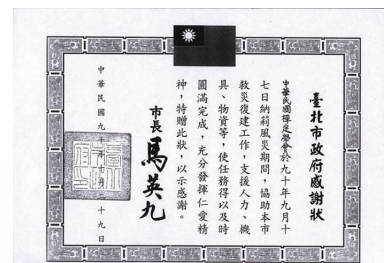 臺北市政府感謝狀
中華民國禪定學會於九十年九月十
七日納莉風災期間,協助本市
救災復建工作,支援人力、機
具、物資等,使任務得以及時
圓滿完成,充分發揮仁愛精
神,特贈此狀,以示感謝。
市長 馬英九
中華民國九十年十月二十九日